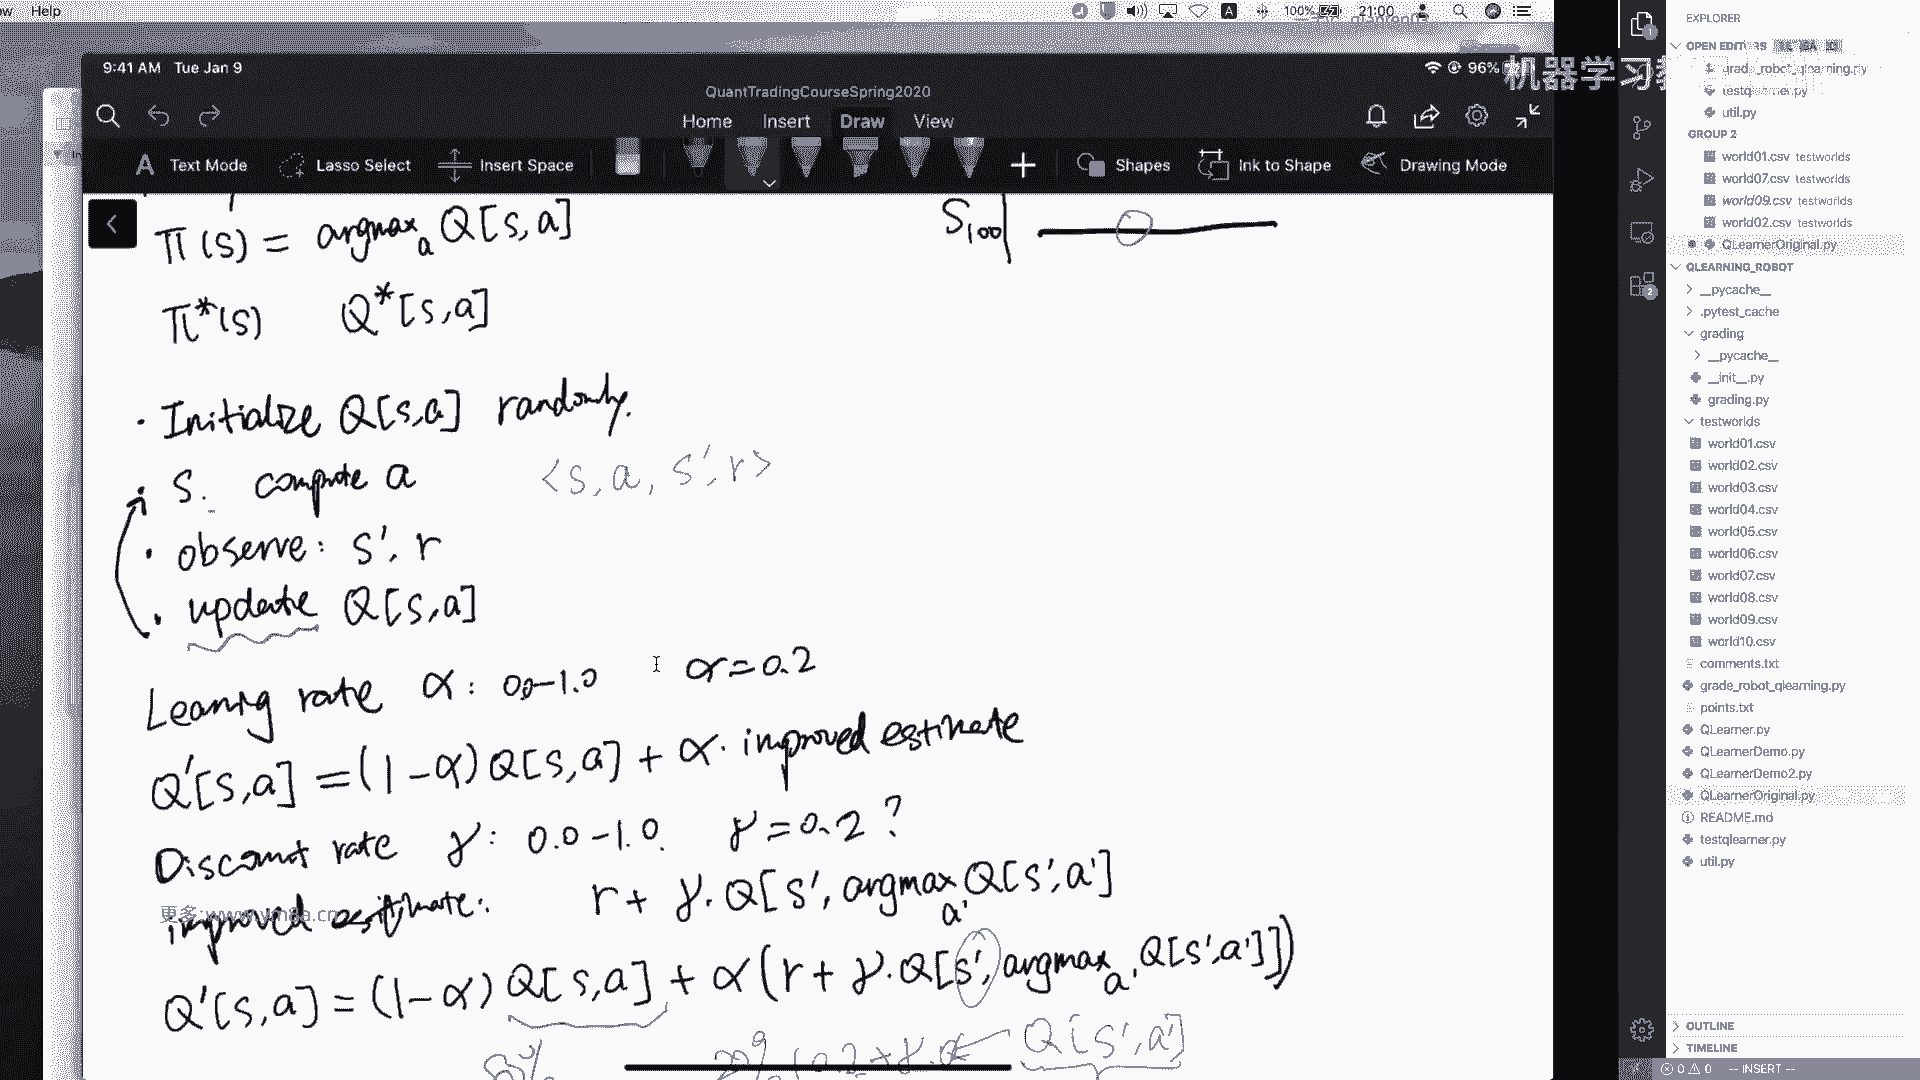 Help
100%
21:00
9:41 AM Tue Jan 9
96%
机器学习
QuantTradingCourseSpring2020
Home Insert Draw View
Text Mode Lasso Select Insert Space Shapes Ink to Shape Drawing Mode
π(s) = argmax_a Q[s,a]
S100
π*(s) Q*[s,a]
· Initialize Q[s,a] randomly.
· S. compute a <s, a, s', r>
· observe: s', r
· update Q[s,a]
Learning rate α: 0.0-1.0 α=0.2
Q'[s,a] = (1-α) Q[s,a] + α· improved estimate
Discount rate γ: 0.0-1.0. γ=0.2?
improved estimate: r + γ· Q[s', argmax_a' Q[s',a']
更多:www.ym8a.cn
Q'[s,a] = (1-α) Q[s,a] + α(r + γ·Q[s', argmax_a' Q[s',a']])
Q[s',a']
EXPLORER
OPEN EDITORS
grade_robot_qlearning.py
testqlearner.py
util.py
GROUP 2
world01.csv testworlds
world07.csv testworlds
world09.csv testworlds
world02.csv testworlds
QLearnerOriginal.py
QLEARNING_ROBOT
__pycache__
.pytest_cache
grading
__pycache__
__init__.py
grading.py
testworlds
world01.csv
world02.csv
world03.csv
world04.csv
world05.csv
world06.csv
world07.csv
world08.csv
world09.csv
world10.csv
comments.txt
grade_robot_qlearning.py
points.txt
QLearner.py
QLearnerDemo.py
QLearnerDemo2.py
QLearnerOriginal.py
README.md
testqlearner.py
util.py
OUTLINE
TIMELINE
0 0 -- INSERT --